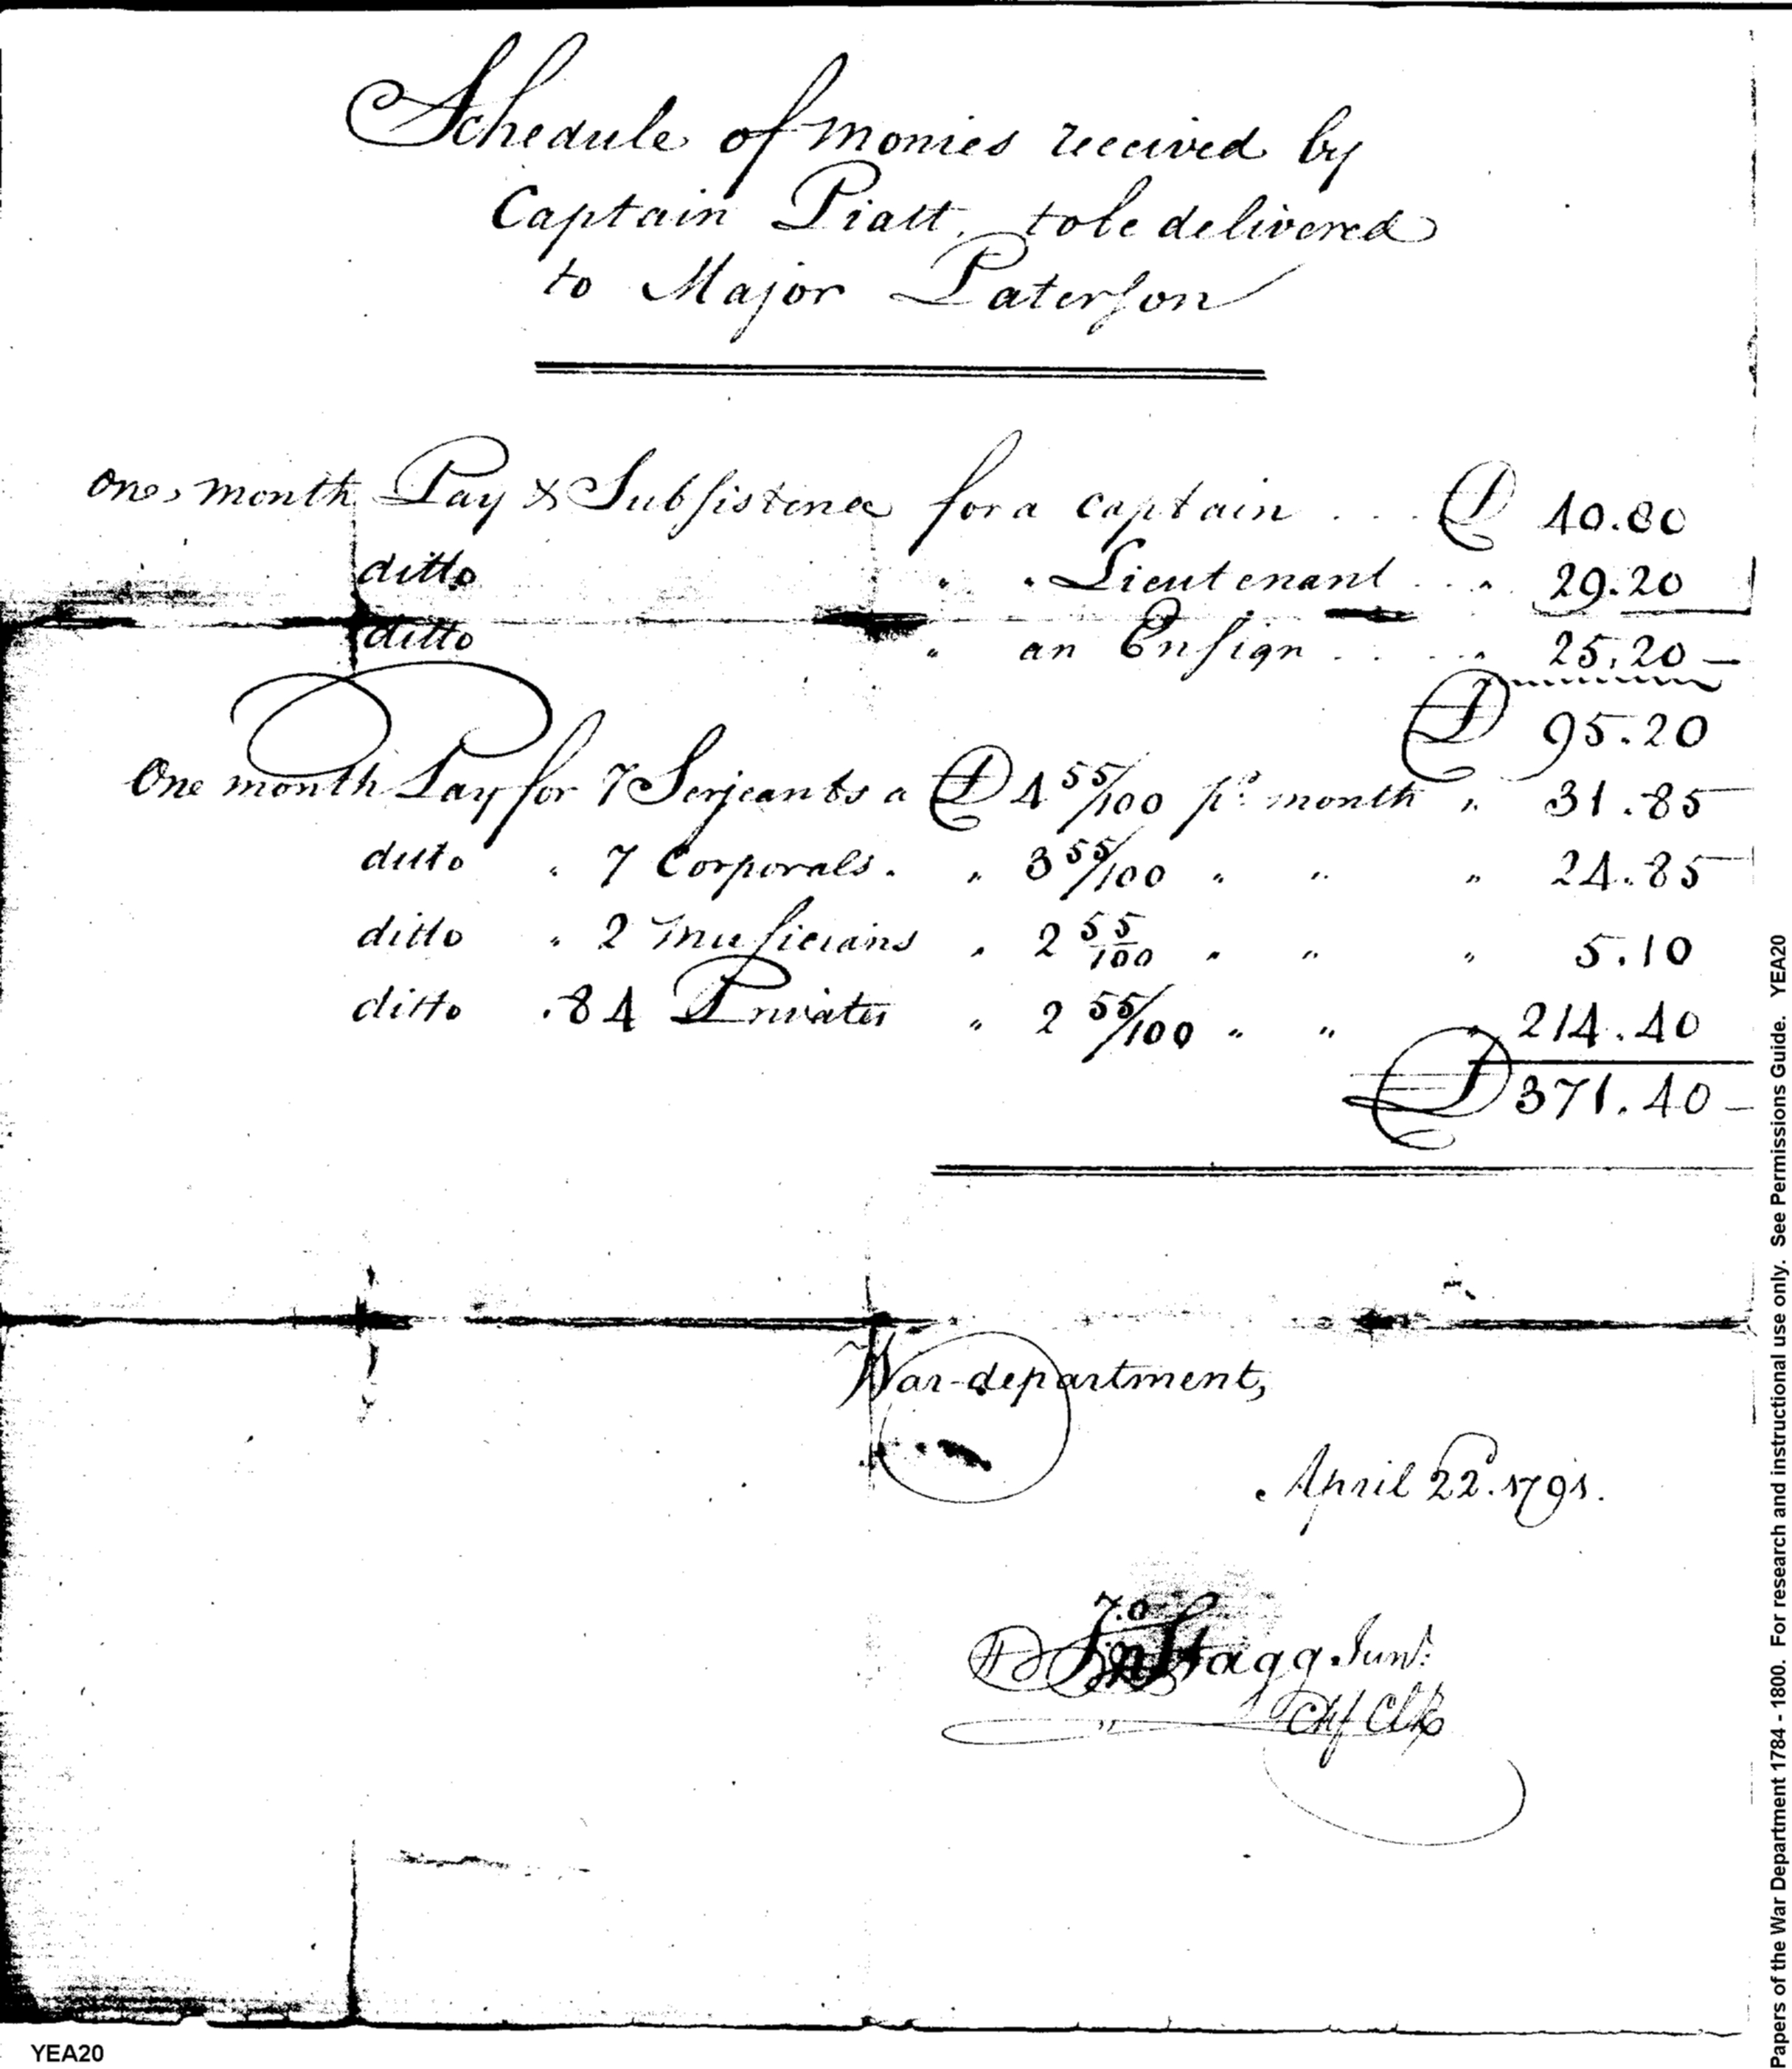 Schedule of monies received by
Captain Piatt, to be delivered
to Major Paterson
One month Pay & Subsistence for a captain ... D 40.80
ditto " " Lieutenant .. " 29.20
ditto " an Ensign .... " 25.20
D 95.20
One month Pay for 7 Serjeants a D 4 55/100 pr. month " 31.85
ditto " 7 Corporals. " 3 55/100 " " " 24.85
ditto " 2 Musicians " 2 55/100 " " " 5.10
ditto " 84 Privates " 2 55/100 " " " 214.40
D 371.40
War-department,
April 22d. 1791.
Jno Stagg Junr.
Chf Clk
YEA20
Papers of the War Department 1784 - 1800. For research and instructional use only. See Permissions Guide. YEA20